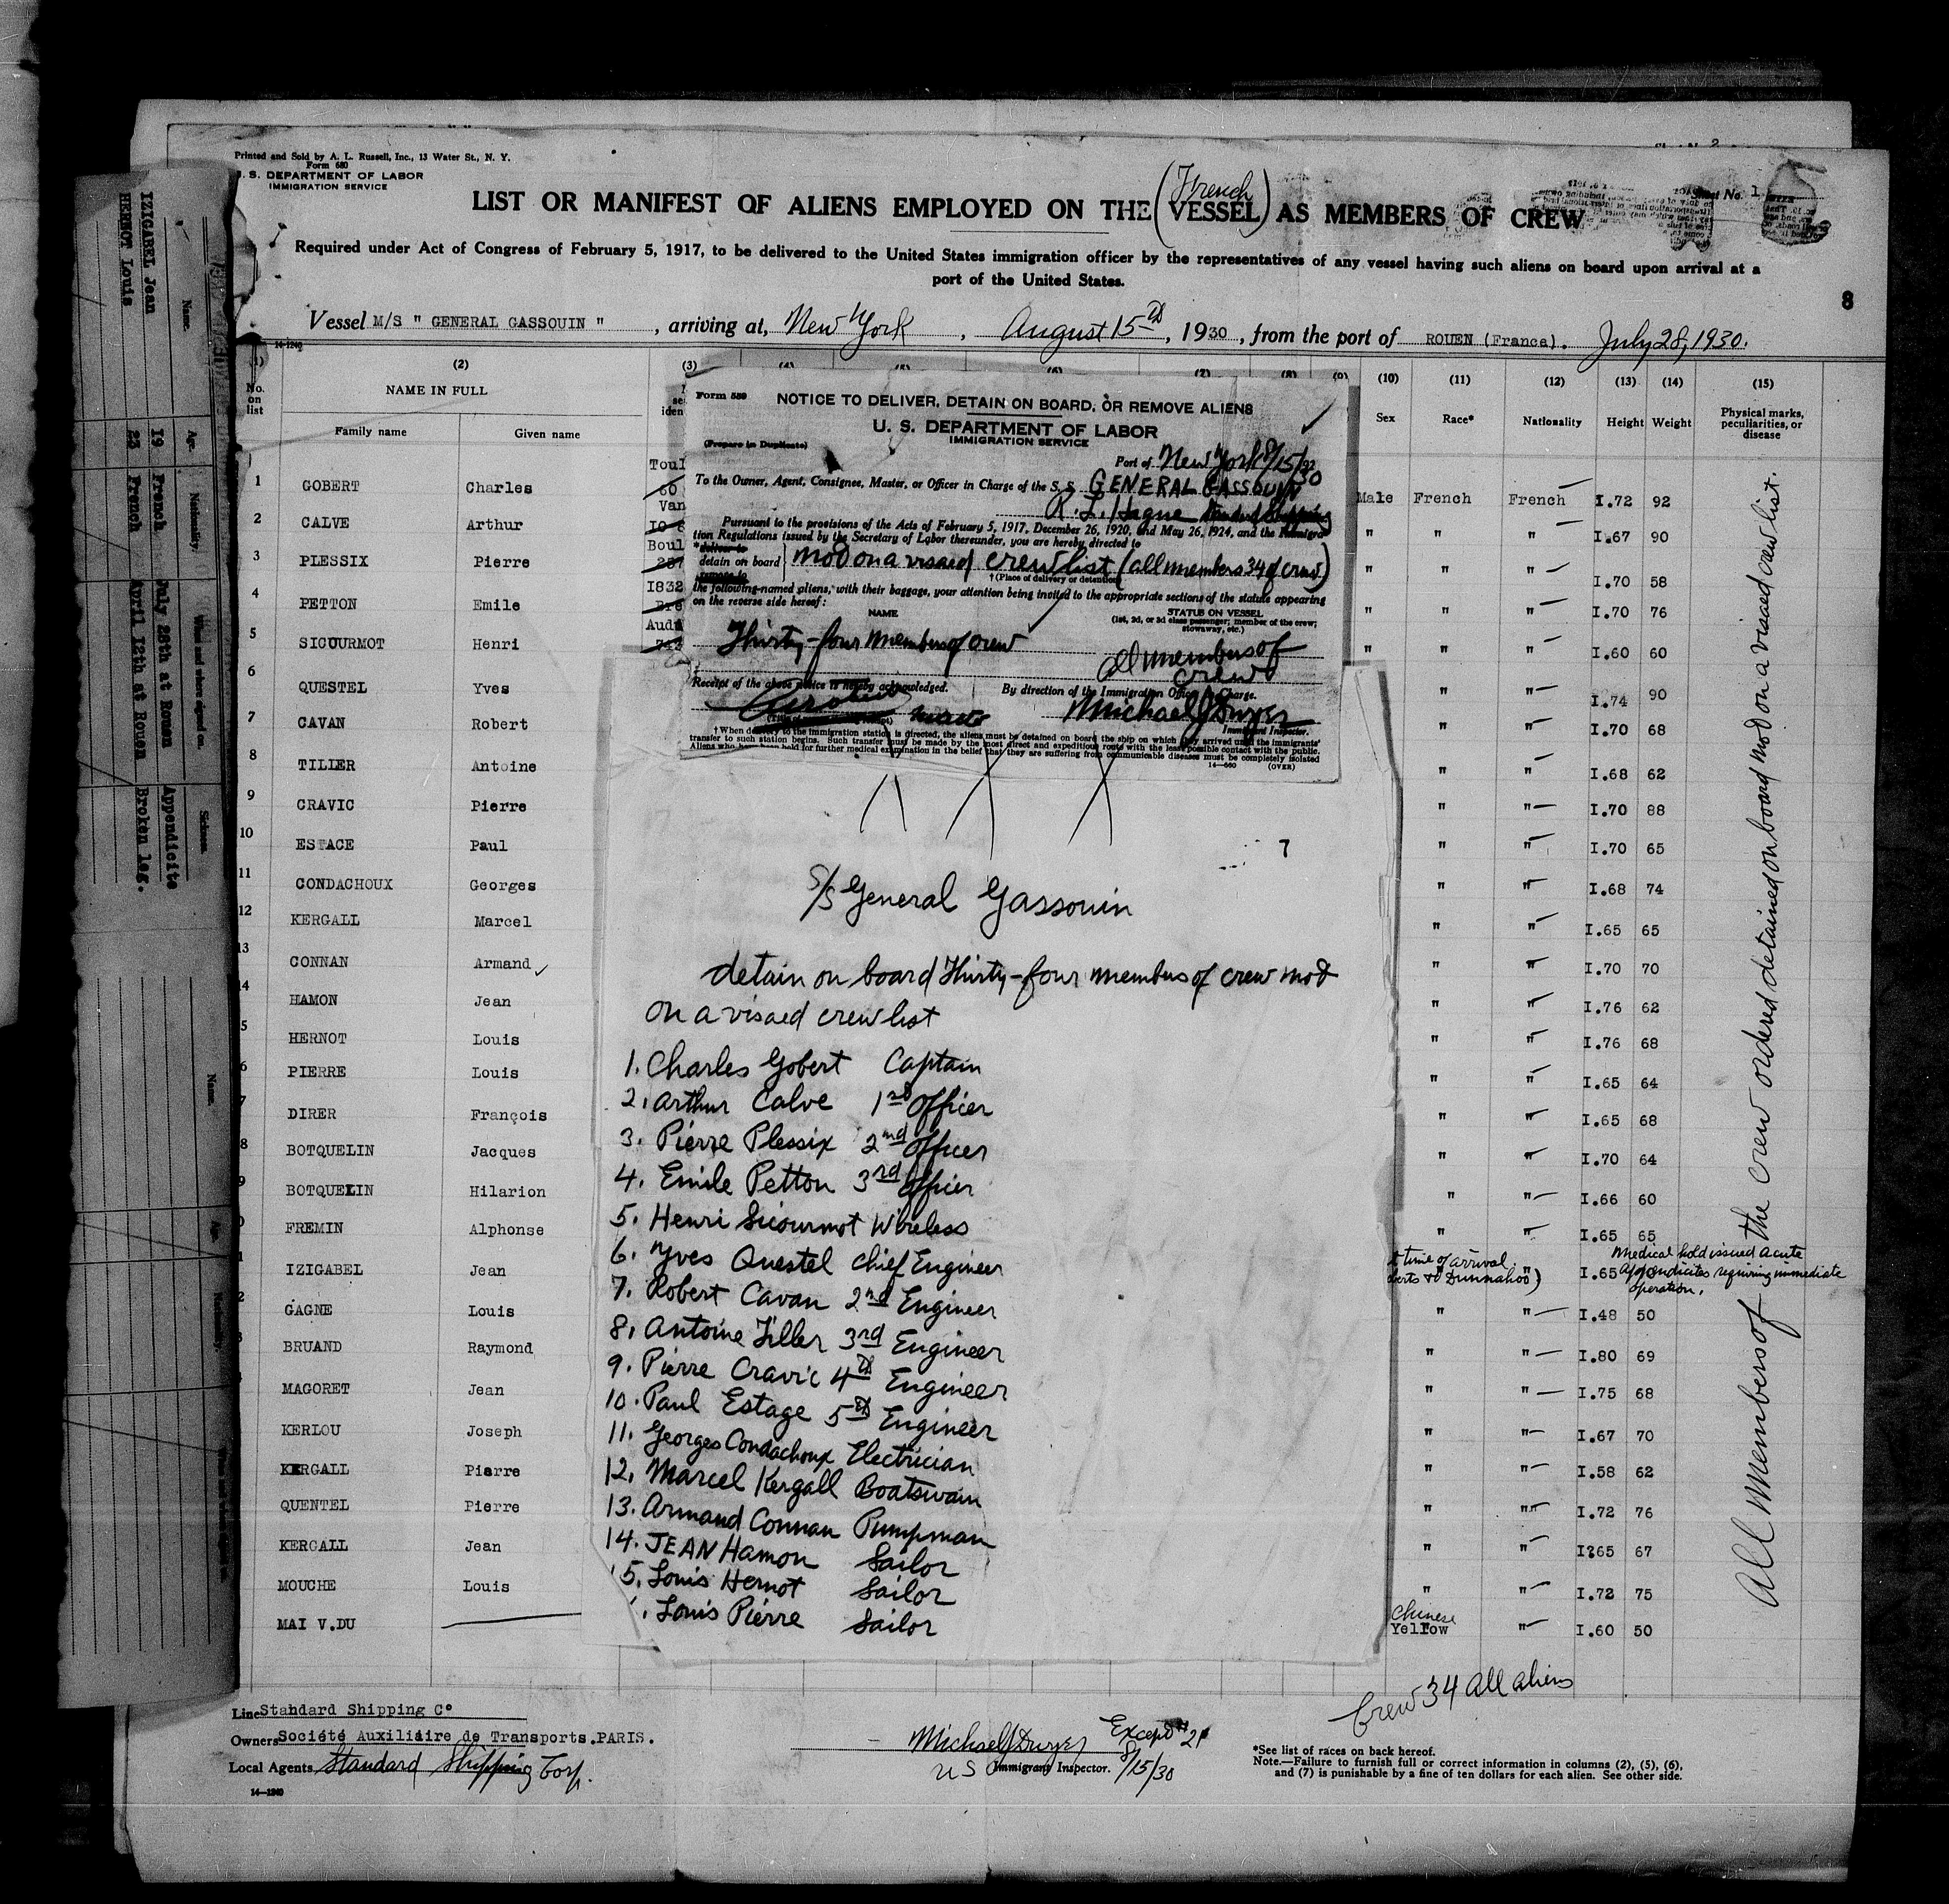 Printed and Sold by A. L. Russell, Inc., 13 Water St., N. Y.
Form 680
U. S. DEPARTMENT OF LABOR
IMMIGRATION SERVICE
Sheet No. 1
LIST OR MANIFEST OF ALIENS EMPLOYED ON THE (French VESSEL) AS MEMBERS OF CREW
Required under Act of Congress of February 5, 1917, to be delivered to the United States immigration officer by the representatives of any vessel having such aliens on board upon arrival at a
port of the United States.
8
Vessel M/S " GENERAL GASSOUIN ", arriving at, New York, August 15th, 1930, from the port of ROUEN (France). July 28, 1930.
14-1240
(1) (2) (3) (4) (5) (6) (7) (8) (9) (10) (11) (12) (13) (14) (15)
No. on list NAME IN FULL Sex Race* Nationality Height Weight Physical marks, peculiarities, or disease
Family name Given name
1 GOBERT Charles Male French French I.72 92
2 CALVE Arthur " " " I.67 90
3 PLESSIX Pierre " " " I.70 58
4 PETTON Emile " " " I.70 76
5 SICOURMOT Henri " " " I.60 60
6 QUESTEL Yves " " I.74 90
7 CAVAN Robert " " I.70 68
8 TILLER Antoine " " I.68 62
9 CRAVIC Pierre " " I.70 88
10 ESTACE Paul " " I.70 65
11 CONDACHOUX Georges " " I.68 74
12 KERGALL Marcel " " I.65 65
13 CONNAN Armand " " I.70 70
14 HAMON Jean " " I.76 62
5 HERNOT Louis " " I.76 68
6 PIERRE Louis " " I.65 64
7 DIRER François " " I.65 68
8 BOTQUELIN Jacques " " I.70 64
9 BOTQUELIN Hilarion " " I.66 60
0 FREMIN Alphonse " " I.65 65
1 IZIGABEL Jean " I.65
time of arrival
Medical hold issued acute
appendicites requiring immediate
operation.
2 GAGNE Louis " " I.48 50
3 BRUAND Raymond " " I.80 69
MAGORET Jean " " I.75 68
KERLOU Joseph " " I.67 70
KERGALL Pierre " " I.58 62
QUENTEL Pierre " " I.72 76
KERGALL Jean " " I265 67
MOUCHE Louis " " I.72 75
MAI V.DU Chinese Yellow " I.60 50
All members of the crew ordered detained on board not on a visaed crew list.
Toul
60
Van
10-8
Boul
257
I832
Bre
Aud
743
Form 589
NOTICE TO DELIVER, DETAIN ON BOARD, OR REMOVE ALIENS
U. S. DEPARTMENT OF LABOR
IMMIGRATION SERVICE
(Prepare in Duplicate)
Port of New York 8/15/30
To the Owner, Agent, Consignee, Master, or Officer in Charge of the S. S. GENERAL GASSOUIN
R. L. Hague Standard Shipping
Pursuant to the provisions of the Acts of February 5, 1917, December 26, 1920, and May 26, 1924, and the Immigra-
tion Regulations issued by the Secretary of Labor thereunder, you are hereby directed to
*deliver to
detain on board not on a visaed crew list (all members 34 of crew)
remove to
†(Place of delivery or detention)
the following-named aliens, with their baggage, your attention being invited to the appropriate sections of the statute appearing
on the reverse side hereof:
NAME STATUS ON VESSEL
(1st, 2d, or 3d class passenger; member of the crew;
stowaway, etc.)
Thirty-four members of crew all members of
crew
Receipt of the above notice is hereby acknowledged. By direction of the Immigration Officer in Charge.
Michael J Dwyer
Immigrant Inspector.
† When delivery to the immigration station is directed, the aliens must be detained on board the ship on which they arrived until the immigrants'
transfer to such station begins. Such transfer must be made by the most direct and expeditious route with the least possible contact with the public.
Aliens who have been held for further medical examination in the belief that they are suffering from communicable diseases must be completely isolated
14—680 (OVER)
7
S/S General Gassouin
detain on board Thirty-four members of crew not
on a visaed crew list
1. Charles Gobert Captain
2. Arthur Calve 1st Officer
3. Pierre Plessix 2nd Officer
4. Emile Petton 3rd Officer
5. Henri Sicourmot Wireless
6. Yves Questel Chief Engineer
7. Robert Cavan 2nd Engineer
8. Antoine Tiller 3rd Engineer
9. Pierre Cravic 4th Engineer
10. Paul Estage 5th Engineer
11. Georges Condachoux Electrician
12. Marcel Kergall Boatswain
13. Armand Connan Pumpman
14. JEAN Hamon Sailor
15. Louis Hernot Sailor
Louis Pierre Sailor
Crew 34 all aliens
Line Standard Shipping C°
Owners Société Auxiliaire de Transports.PARIS.
Local Agents Standard Shipping Corp.
14—1240
Michael J Dwyer Except #21
US Immigrant Inspector. 8/15/30
*See list of races on back hereof.
Note.—Failure to furnish full or correct information in columns (2), (5), (6),
and (7) is punishable by a fine of ten dollars for each alien. See other side.
Name. Age. Nationality. When and where signed on. Sickness.
IZIGABEL Jean 19 French July 28th at Rouen Appendicite
HERNOT Louis 23 French April 12th at Rouen Broken leg.
Name. Age. Nationality.